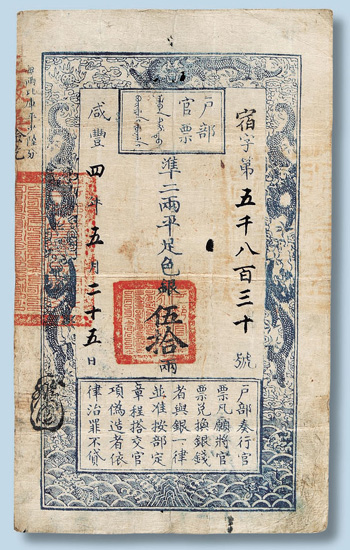 户部
官票
宿字第五千八百三十號
準二兩平足色銀伍拾兩
咸豐四年五月二十五日
户部奏行官
票凡願將官
票兑換銀錢
者與銀一律
並准按部定
章程搭交官
項偽造者依
律治罪不貸
每兩比庫平少陸分